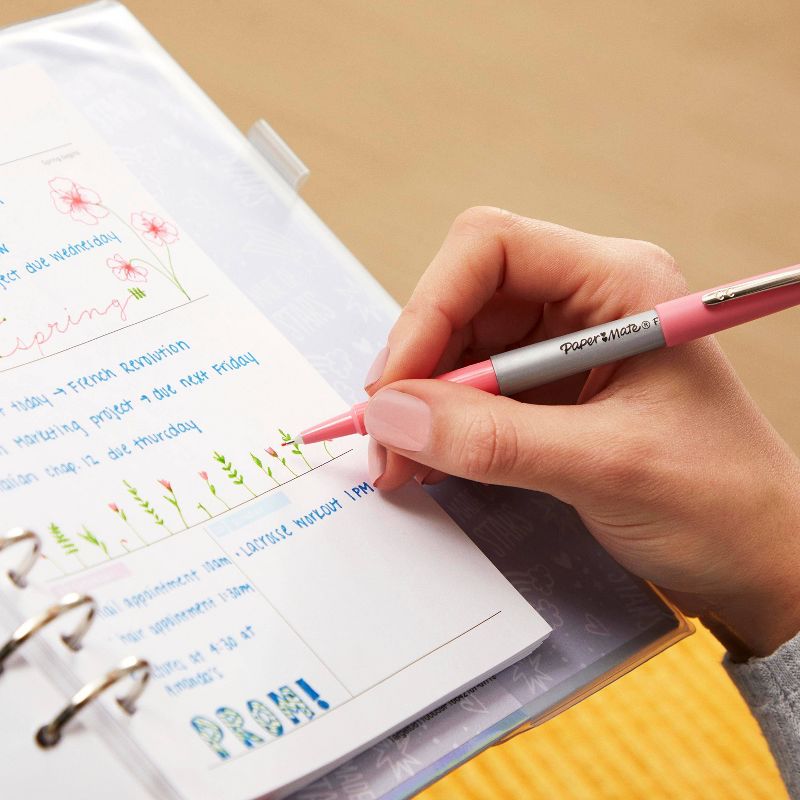 Spring Begins
project due Wednesday
spring
today → French Revolution
Marketing project → due next Friday
Italian chap. 12 due thursday
Paper Mate®
• Lacrosse workout 1PM
appointment 10am
hair appointment 1:30pm
pictures at 4:30 at
Amanda's
PROM!